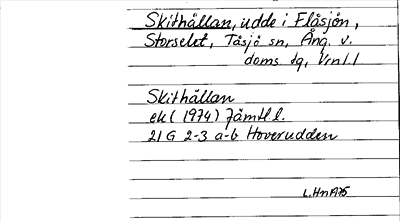 Skithållan, udde i Flåsjön,
Storselet, Tåsjö sn, Ång. v.
doms tg, Vrnl.l
Skithållan
ek (1974) Jämtl l.
21 G 2-3 a-b Hoverudden
L.Hn 1975